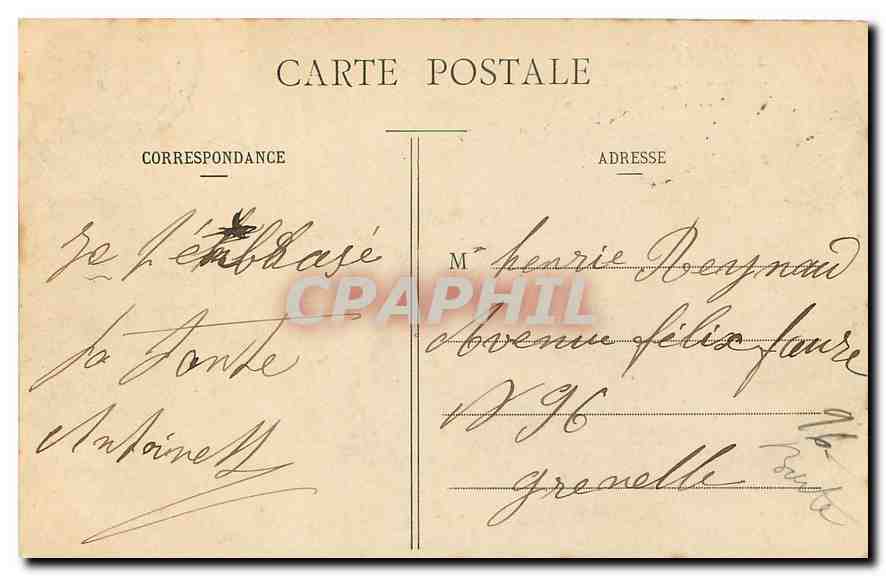 CARTE POSTALE
CORRESPONDANCE
ADRESSE
Je t'embrasé
ta Tante
Antoinett
Mr henrie Reynaud
Avenue félix faure
N 96
grenelle
96
CPAPHIL